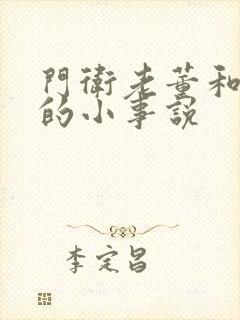 門衛老董和
的小事說
李定昌